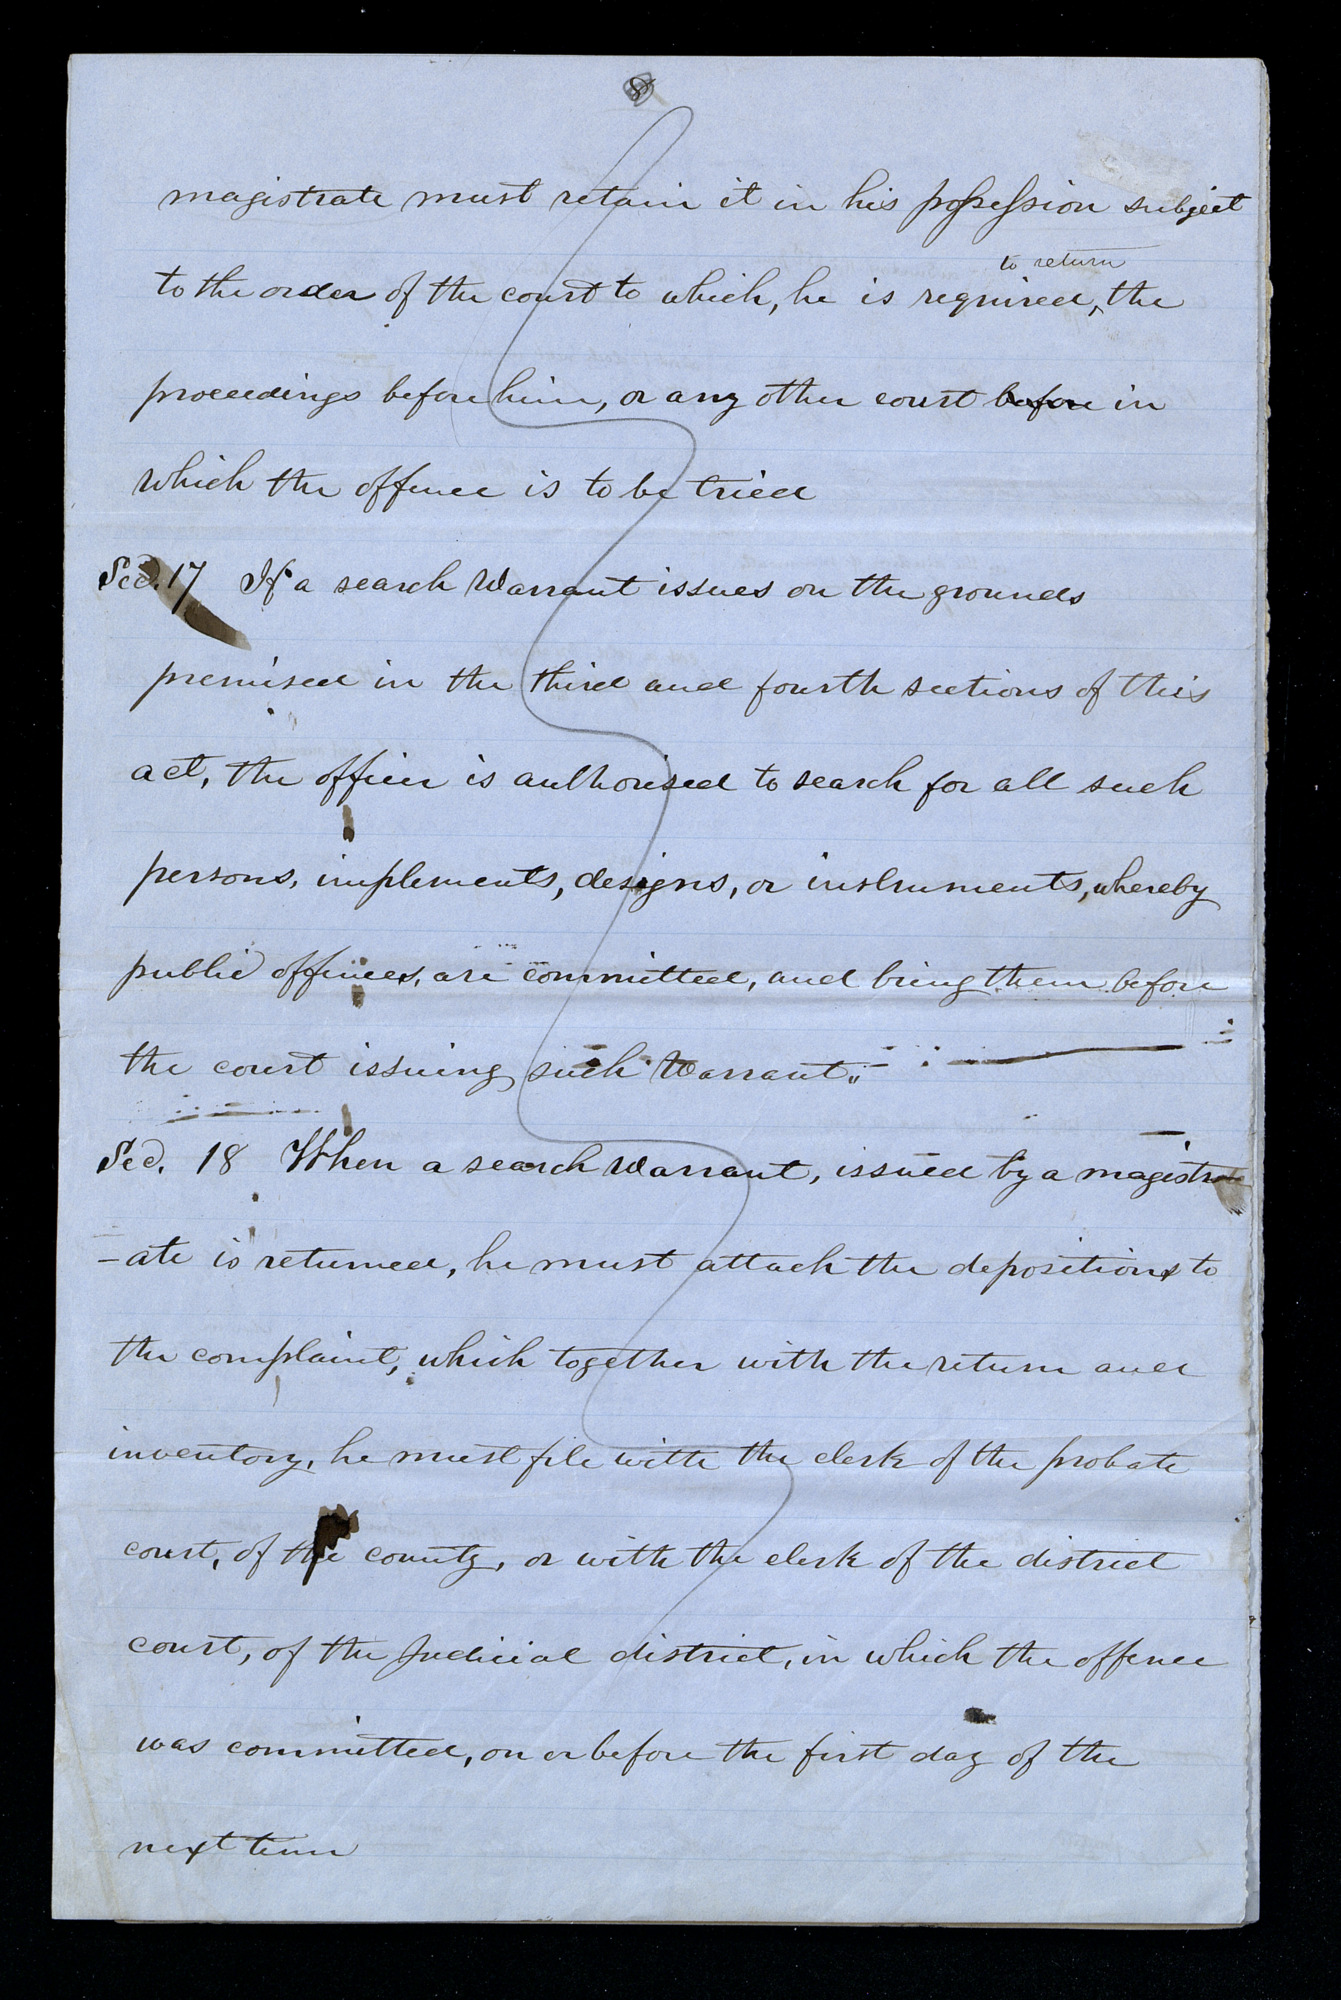 8
magistrate must retain it in his possession subject
to return
to the order of the court to which, he is required, the
proceedings before him, or any other court before in
which the offence is to be tried
Sec. 17 If a search Warrant issues on the grounds
premised in the third and fourth sections of this
act, the officer is authorised to search for all such
persons, implements, designs, or instruments, whereby
public offences, are committed, and bring them before
the court issuing such Warrant.
Sec. 18 When a search Warrant, issued by a magistr
-ate is returned, he must attach the depositions to
the complaint, which together with the return and
inventory, he must file with the clerk of the probate
court, of the county, or with the clerk of the district
court, of the Judicial district, in which the offence
was committed, on or before the first day of the
next term